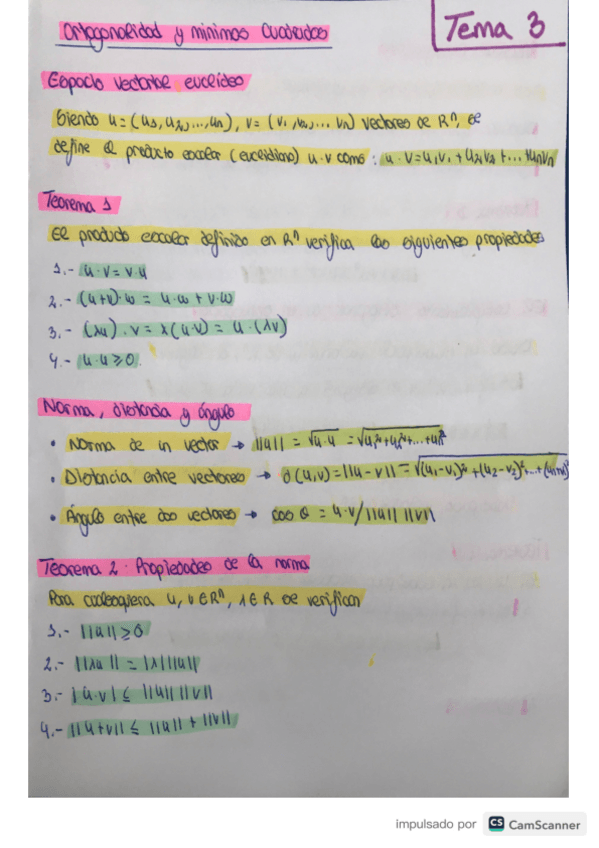 Ortogonalidad y mínimos Cuadrados
Tema 3
Espacio vectorial euclídeo
Siendo u=(u1,u2,...,un), v=(v1,v2,... vn) vectores de Rⁿ, se
define el producto escalar (euclidiano) u·v como: u·v=u1v1+u2v2+...+unvn
Teorema 1
El producto escalar definido en Rⁿ verifica las siguientes propiedades
1.- u·v=v·u
2.- (u+v)·w = u·w + v·w
3.- (λu)·v = λ(u·v) = u·(λv)
4.- u·u≥0.
Norma, distancia y ángulo
• Norma de un vector → ||u|| = √u·u = √u1²+u2²+...+un²
• Distancia entre vectores → d(u,v)=||u-v||=√(u1-v1)²+(u2-v2)²...+(un-vn)²
• Ángulo entre dos vectores → cos θ = u·v/||u|| ||v||
Teorema 2. Propiedades de la norma
Para cualesquiera u, v∈Rⁿ, λ∈R se verifican
1.- ||u||≥0
2.- ||λu|| = |λ|||u||
3.- |u·v| ≤ ||u|| ||v||
4.- ||u+v|| ≤ ||u|| + ||v||
impulsado por CS CamScanner